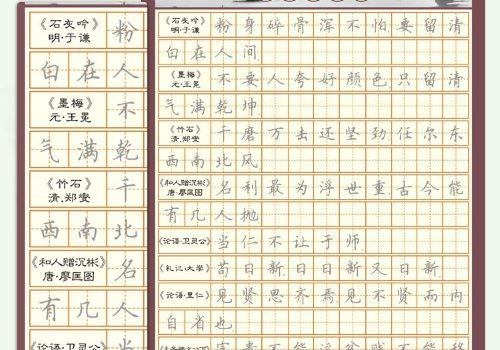 《石灰吟》
明·于谦 粉
白在人
《墨梅》
元·王冕 不
气满乾
《竹石》
清.郑燮 千
西南北
《和人赠沉彬》
唐·廖匡图 名
有几人
《论语·卫灵公》 当
《石灰吟》
明·于谦 粉身碎骨浑不怕要留清
白在人间
《墨梅》
元·王冕 不要人夸好颜色只留清
气满乾坤
《竹石》
清.郑燮 千磨万击还坚劲任尔东
西南北风
《和人赠沉彬》
唐·廖匡图 名利最为浮世重古今能
有几人抛
《论语·卫灵公》 当仁不让于师
《礼记·大学》 苟日新日日新又日新
《论语·里仁》 见贤思齐焉见不贤而内
自省也
富贵不能淫贫贱不能移